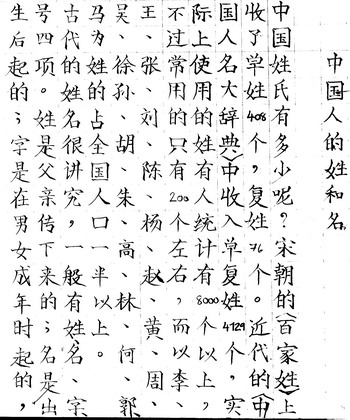 中国人的姓和名
中国姓氏有多少呢？宋朝的《百家姓》上
收了单姓408个，复姓76个。近代的《中
国人名大辞典》中收入单复姓4129个，实
际上使用的姓有人统计有8000个以上，
不过常用的只有200个左右，而以李、
王、张、刘、陈、杨、赵、黄、周、
吴、徐、孙、胡、朱、高、林、何、郭
马为姓的占全国人口一半以上。
古代的姓名很讲究，一般有姓、名、字
号四项。姓是父亲传下来的；名是出
生后起的；字是在男女成年时起的，